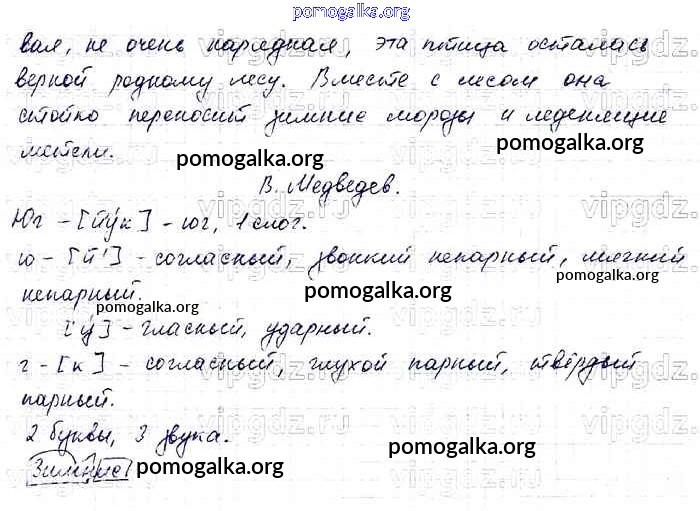 pomogalka.org
вая, не очень нарядная, эта птица осталась
верной родному лесу. Вместе с лесом она
стойко переносит зимние морозы и леденящие
метели.
pomogalka.org
В. Медведев.
Юг – [й'у́к] – юг, 1 слог.
ю – [й'] – согласный, звонкий непарный, мягкий
непарный.
pomogalka.org
pomogalka.org
pomogalka.org
[у́] – гласный, ударный.
г – [к] – согласный, глухой парный, твёрдый
парный.
2 буквы, 3 звука.
pomogalka.org
Зимние
pomogalka.org
vipgdz.ru